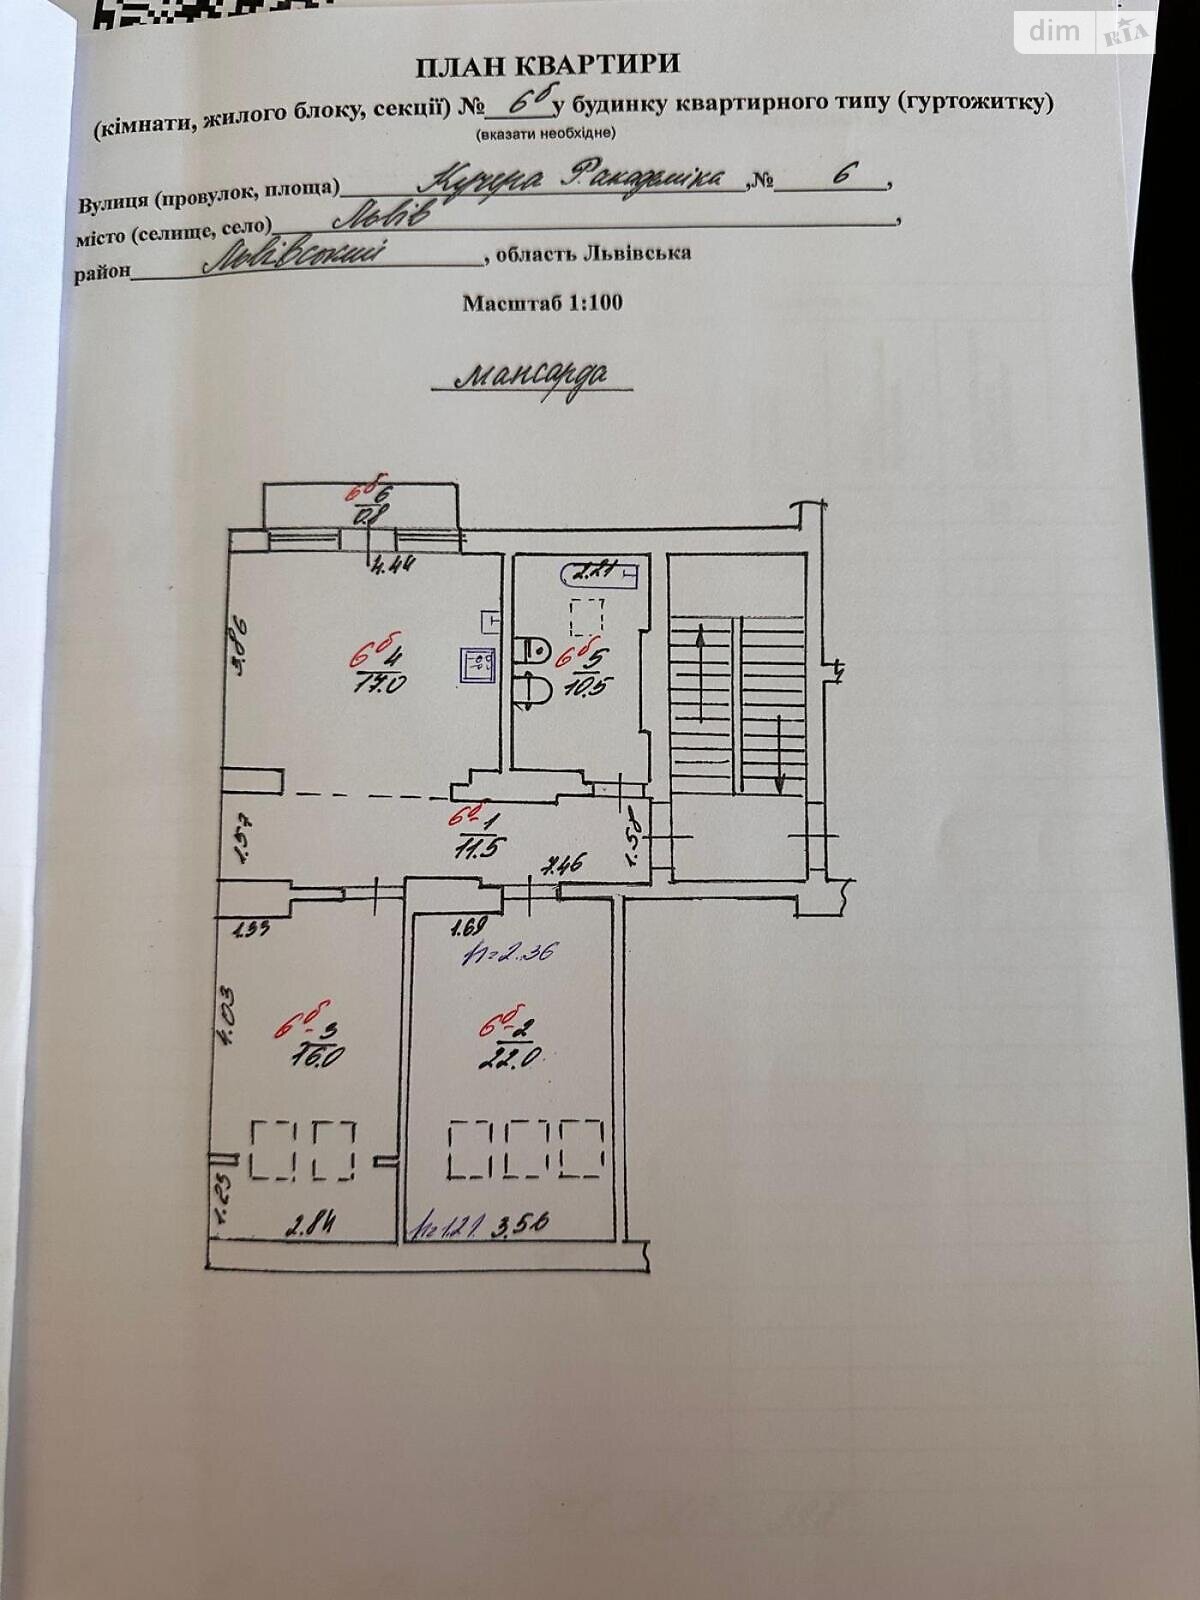 dim RIA
ПЛАН КВАРТИРИ
(кімнати, жилого блоку, секції) № 6б у будинку квартирного типу (гуртожитку)
(вказати необхідне)
Вулиця (провулок, площа) Кучера Р. академіка ,№ 6 ,
місто (селище, село) Львів ,
район Львівський , область Львівська
Масштаб 1:100
мансарда
6б 6
0.8
4.44
2.21
3.86
6б 4
17.0
6б 5
10.5
1.57
6б-1
11.5
7.46
1.58
1.69
h=2.36
4.03
6б-3
16.0
6б-2
22.0
1.25
2.84
h=1.21
3.56